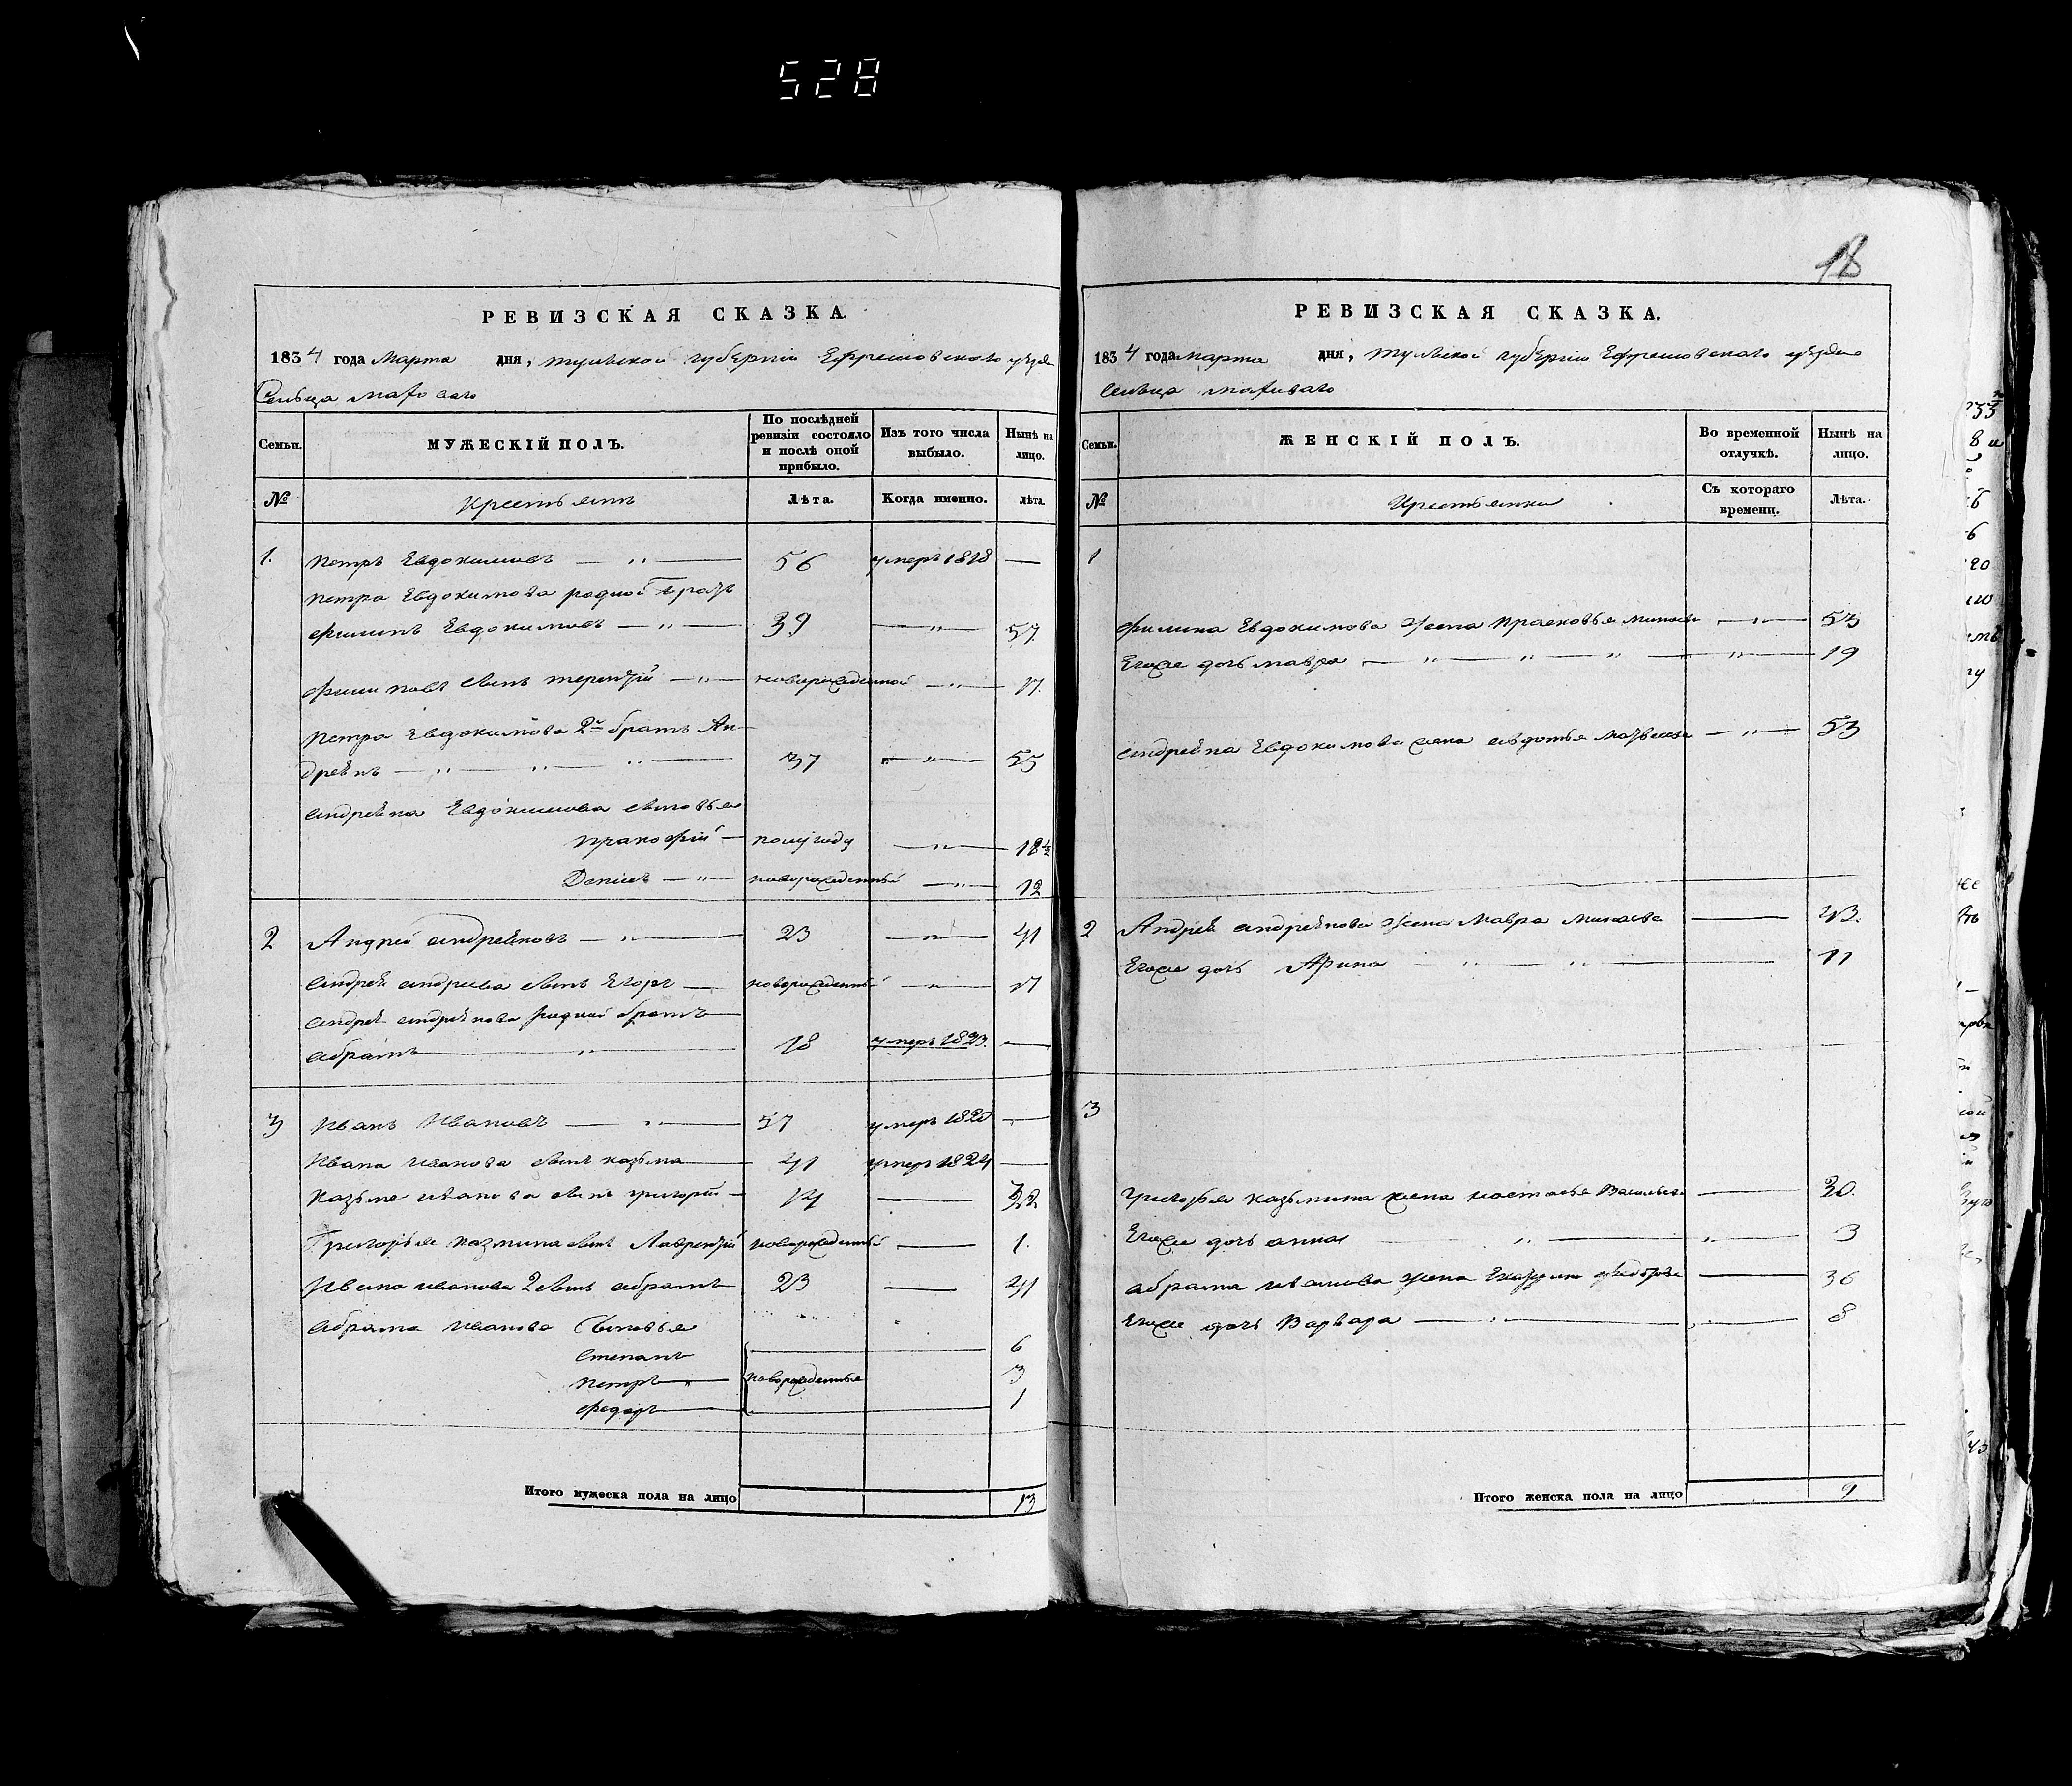 528
18
РЕВИЗСКАЯ СКАЗКА.
1834 года Марта дня, Тульской губернiи Ефремовскаго уѣзда
Сельца
Семьи. МУЖЕСКІЙ ПОЛЪ. По послѣдней ревизіи состояло и послѣ оной прибыло. Изъ того числа выбыло. Нынѣ на лицо.
№ Крестьянъ Лѣта. Когда именно. лѣта.
1. Петръ Евдокимовъ — „ — 56 умеръ 1818 —
Петра Евдокимова родной братъ
Филипъ Евдокимовъ — „ — 39 — „ — 57
Филиповъ сынъ терентiй — „ — новорожденной — „ — 17.
Петра Евдокимова 2й братъ Ан-
дреянъ — „ — „ — „ — 37 — „ — 55
андреяна Евдокимова сыновья
Пракофiй — полугоду — „ — 18 ½
Денисъ — „ — новорожденный — „ — 12
2 Андрей андреяновъ — „ — 23 — „ — 41
андрея андреева сынъ Егоръ — новорожденный — „ — 17
андрея андреянова родной братъ
абрамъ — „ 18 умеръ 1823. —
3 Иванъ Ивановъ — „ — 57 умеръ 1820 —
Ивана иванова сынъ казьма — 41 умеръ 1824 —
Казьме иванова сынъ григорiй — 14 — 32
Григорья казмина сынъ Лаврентiй новорожденный — 1.
Ивана иванова 2 сынъ абрамъ — 23 — 41
абрама иванова Сыновья
Степанъ — 6
Петръ „ — новорожденные 3
Федоръ — 1
Итого мужеска пола на лицо 13
РЕВИЗСКАЯ СКАЗКА.
1834 года марта дня, Тульской губернiи Ефремовскаго уѣзда
сельца
Семьи. ЖЕНСКІЙ ПОЛЪ. Во временной отлучкѣ. Нынѣ на лицо.
№ Крестьянки Съ котораго времени. Лѣта.
1
Филипа Евдокимова жена Прасковья минаева — „ — 53
Егоже дочь мавра — „ — „ — „ — „ — 19
андреяна Евдокимова жена авдотья матвеева — „ — 53
2 Андрея андреянова жена Мавра минаева — 43.
Егоже дочь Арина — „ — „ — 11
3
григорья казьмина жена настасья Васильева — 30.
Егоже дочь анна — „ — „ — 3
абрама иванова жена Екатерина федорова — 36
Егоже дочь Варвара — „ — 8
Итого женска пола на лицо 9